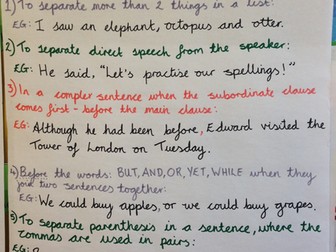 1) To separate more than 2 things in a list:
EG: I saw an elephant, octopus and otter.
2) To separate direct speech from the speaker:
EG: He said, "Let's practise our spellings!"
3) In a complex sentence when the subordinate clause
comes first - before the main clause:
EG: Although he had been before, Edward visited the
Tower of London on Tuesday.
4) Before the words: BUT, AND, OR, YET, WHILE when they
join two sentences together:
EG: We could buy apples, or we could buy grapes.
5) To separate parenthesis in a sentence, where the
commas are used in pairs:
EG: